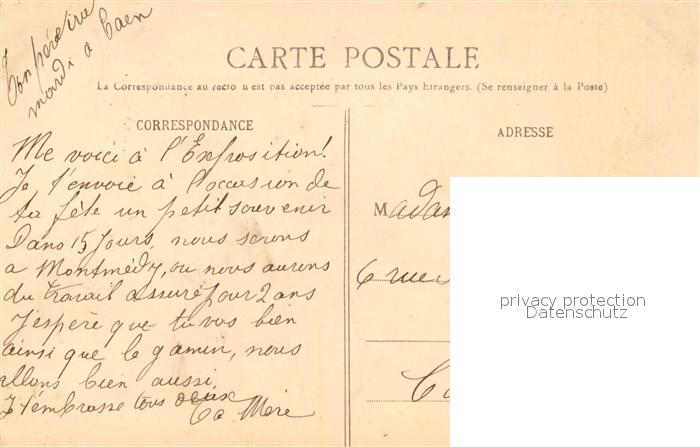 Ton père ira
mardi à Caen
CARTE POSTALE
La Correspondance au recto n'est pas acceptée par tous les Pays Etrangers. (Se renseigner à la Poste)
CORRESPONDANCE
ADRESSE
Me voici à l'Exposition!
Je t'envoie à l'occasion de
ta fête un petit souvenir
Dans 15 jours, nous serons
a Montmédy, ou nous aurons
du travail assuré pour 2 ans
J'espère que tu vas bien
ainsi que le gamin, nous
allons bien aussi,
Je t'embrasse tous deux
Ta Mère
Madam
6 rue
privacy protection
Datenschutz
Ca